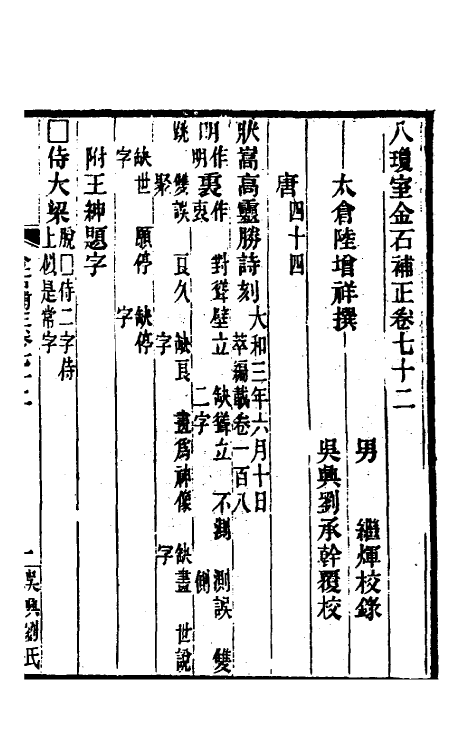 八瓊室金石補正卷七十二
太倉陸增祥撰
男　繼煇校錄
吳興劉承幹覆校
唐四十四
狀嵩高靈勝詩刻 大和三年六月十日萃編載卷一百八
朙作明　作　對聳壁立 缺聳立二字　不測 測誤側　雙
跳 雙誤聚　良久 缺良字　畫爲神像 缺畫字　世說
缺世字　願停 缺停字
附王紳題字
□侍大梁 脫□侍二字侍上似是常字
金石補正卷七十二
一
吳興劉氏